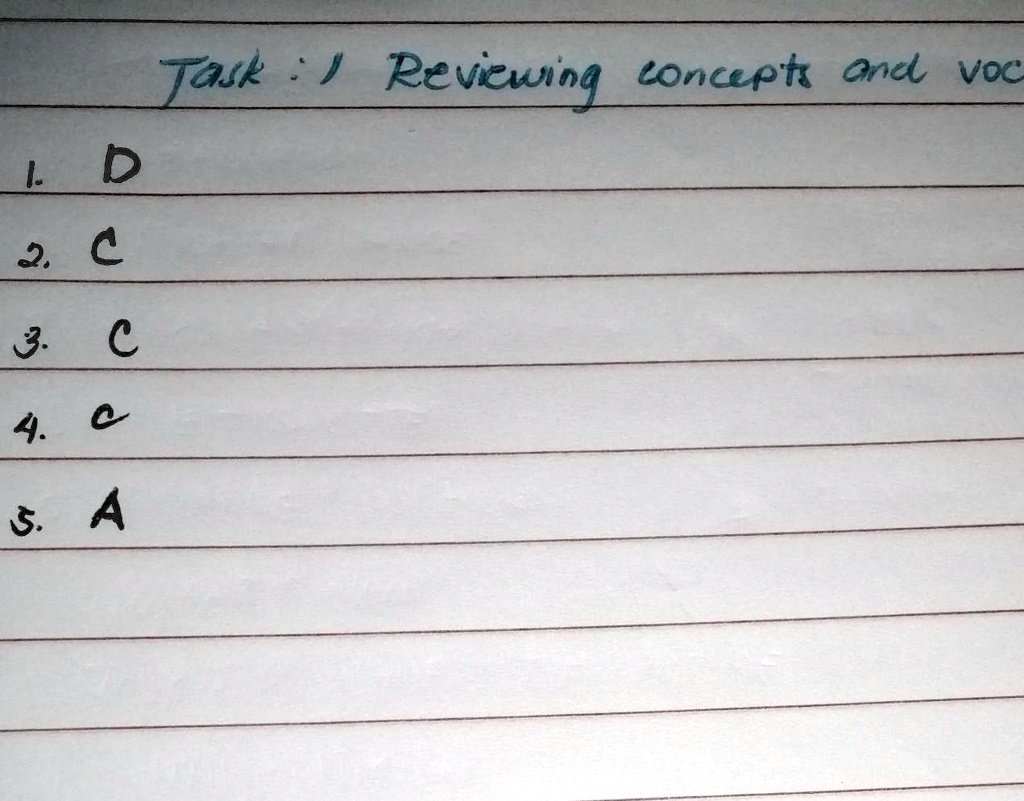 Task : 1 Reviewing concepts and voc
1. D
2. C
3. C
4. C
5. A